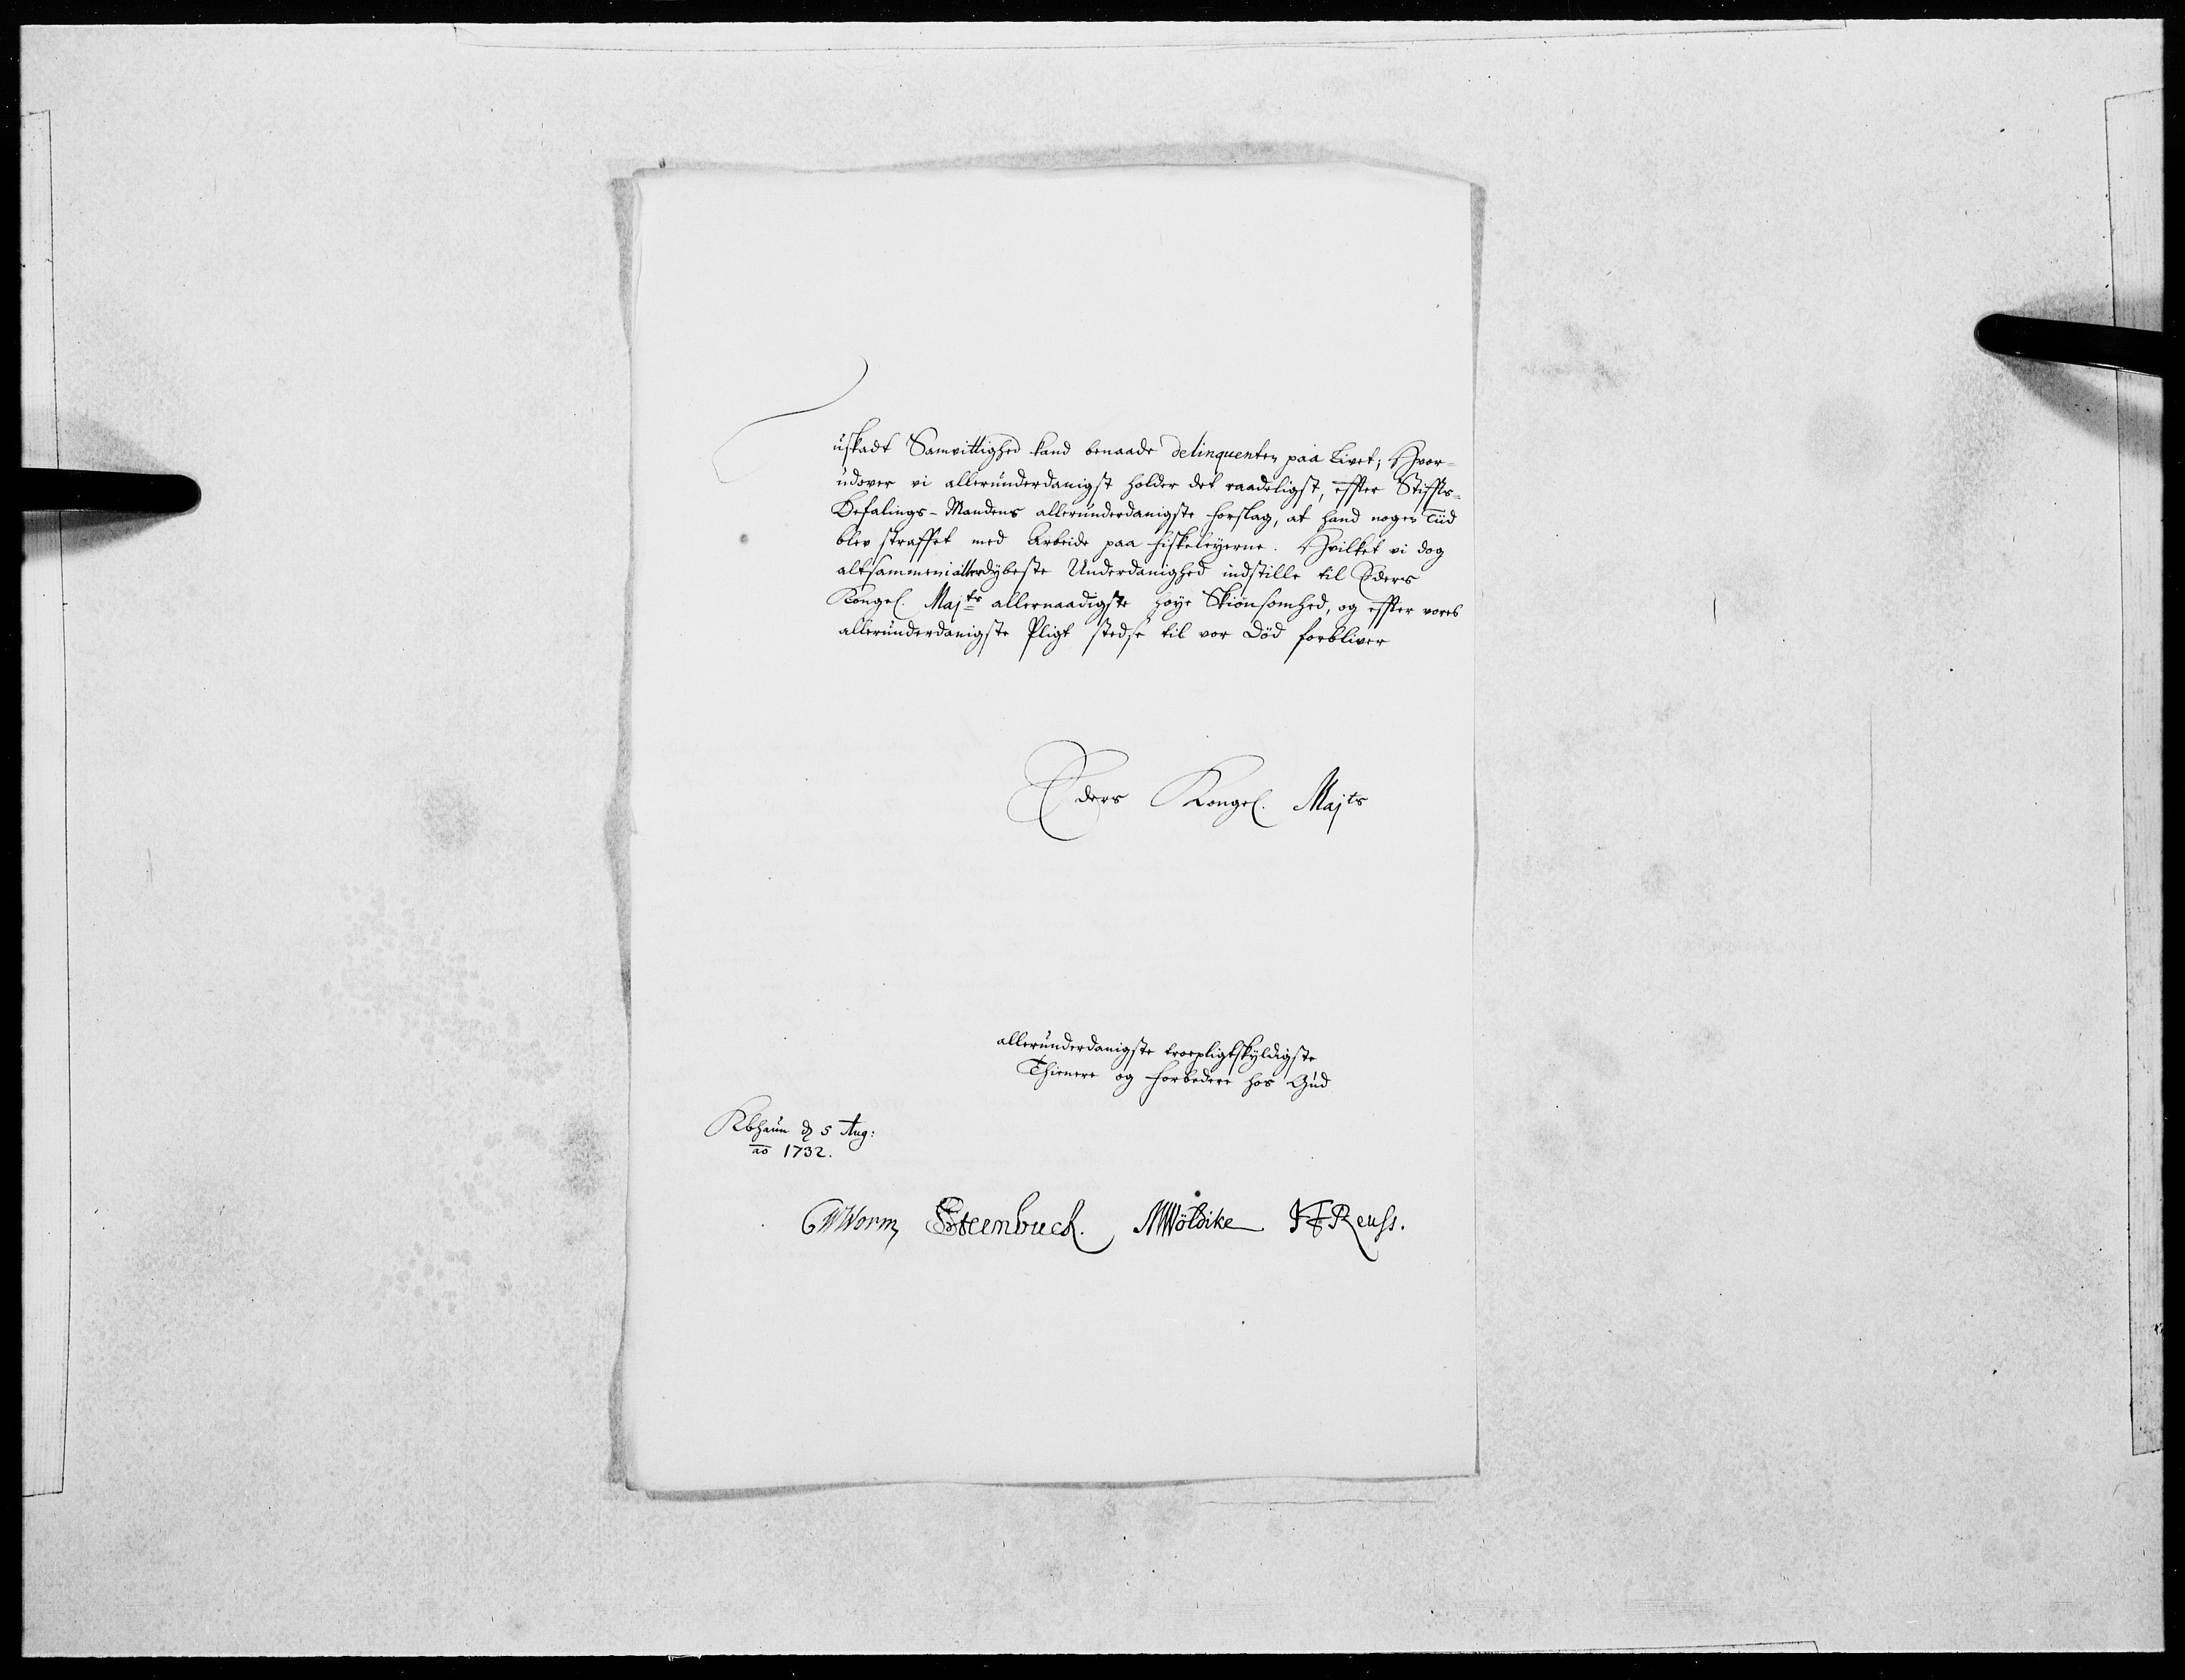 uskadt Samvittighed kand benaade Delinquenten paa Livet; Hvor-
udover vi allerunderdanigst holder det raadeligst, effter Stiffts-
Befalings-Mandens allerunderdanigste forslag, at hand nogen Tiid
blev straffet med Arbeide paa fiskeleyerne. Hvilket vi dog
altsammen i allerdybeste Underdanighed indstille til Eders
Kongel. Majts allernaadigste høye Skiønsomhed, og effter vores
allerunderdanigste Pligt stedse til vor Død forbliver
Eders Kongel. Majts
allerunderdanigste troepligtskyldigste
Thienere og forbedere hos Gud
Kbhaun d 5 Aug:
ao 1732.
CWWorm Steenbuch. MWöldike JFReuss.